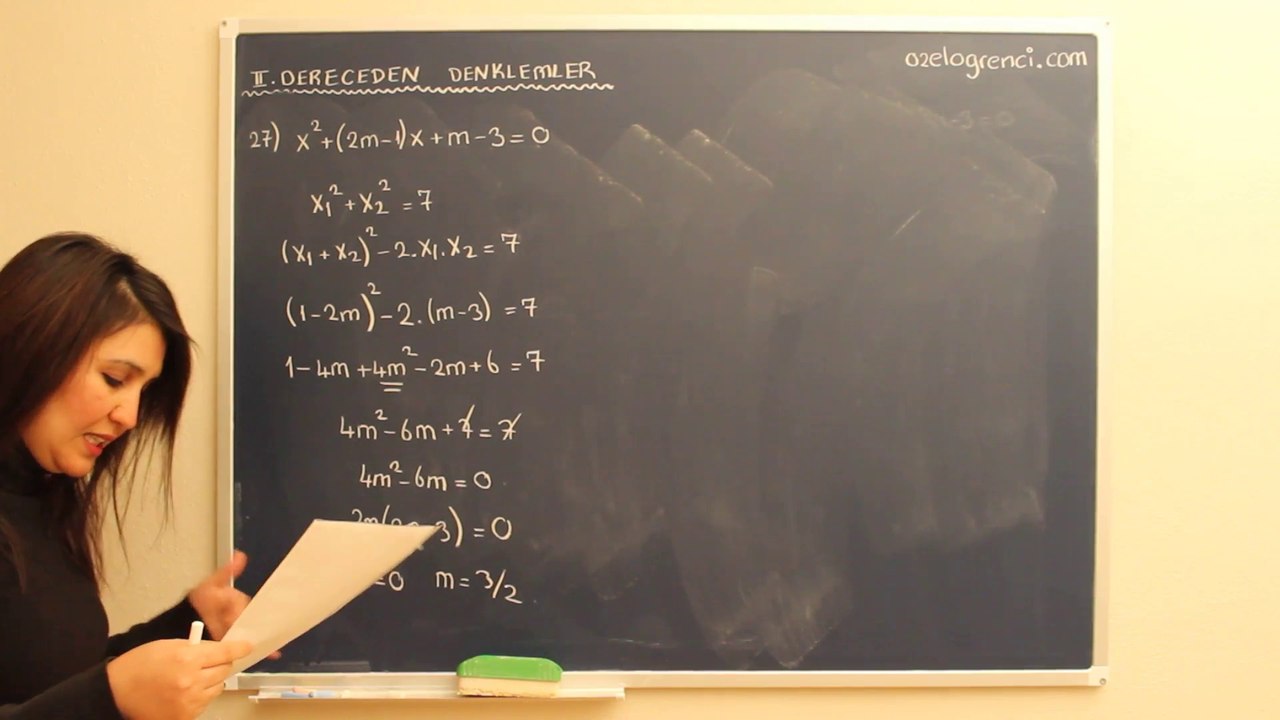 II. DERECEDEN DENKLEMLER
ozelogrenci.com
27) x²+(2m-1)x+m-3=0
x₁²+x₂²=7
(x₁+x₂)²-2.x₁.x₂=7
(1-2m)²-2.(m-3)=7
1-4m+4m²-2m+6=7
4m²-6m+7=7
4m²-6m=0
3)=0
=0 m=3/2